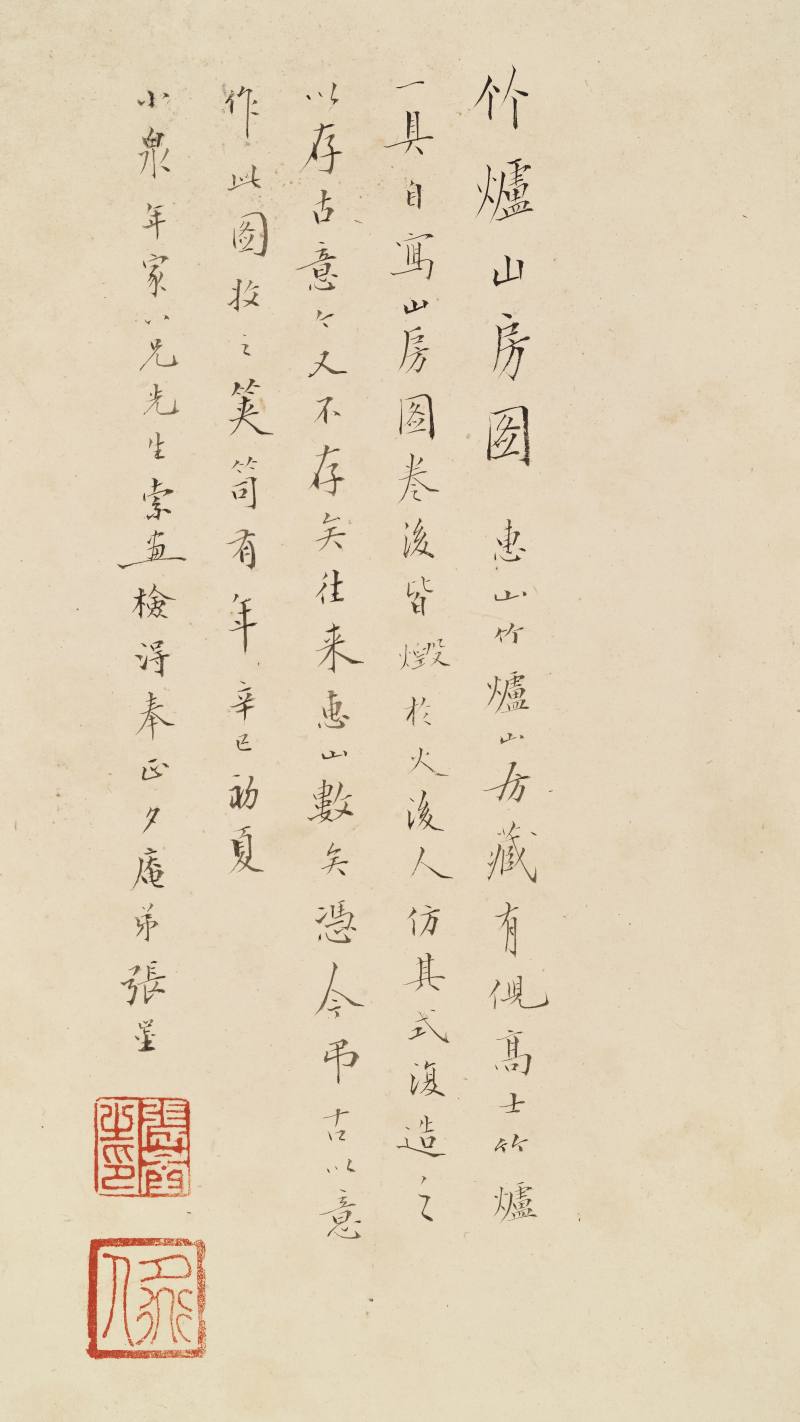 竹爐山房圖 惠山竹爐山房藏有倪高士竹爐
一具自寫山房圖卷後皆燬於火後人仿其式復造之
以存古意今又不存矣往来惠山數矣憑今弔古以意
作此圖投之篋笥有年辛巳初夏
小泉年家八兄先生索畫檢得奉正夕庵弟張崟
張崟之印